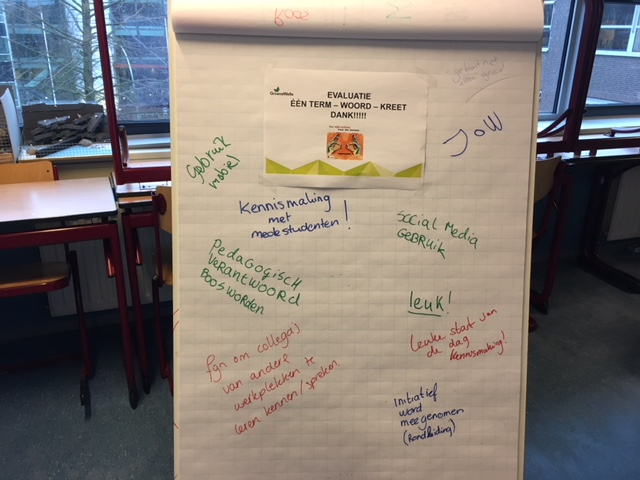 GroeneWelle
EVALUATIE
ÉÉN TERM – WOORD – KREET
DANK!!!!!
JOW
Gebruik
mobiel
Kennismaking
met
medestudenten!
Social Media
GEBRUIK
PEDAGOGISCH
VERANTWOORD
BOOS WORDEN
leuk!
Leuke start van
de dag
Kennismaking!
Fijn om collega's
van andere
werkplekken te
leren kennen/spreken.
Initiatief
word
meegenomen
(Rondleiding)